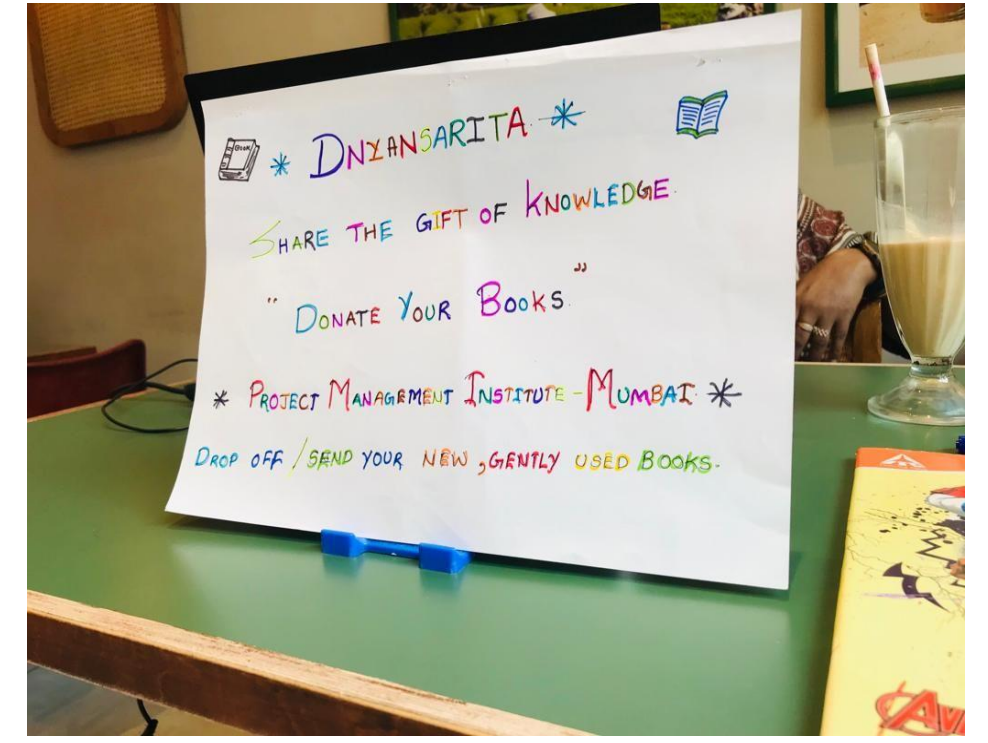 * DNYANSARITA *
SHARE THE GIFT OF KNOWLEDGE.
" DONATE YOUR BOOKS. "
* PROJECT MANAGEMENT INSTITUTE - MUMBAI *
DROP OFF / SEND YOUR NEW, GENTLY USED BOOKS.